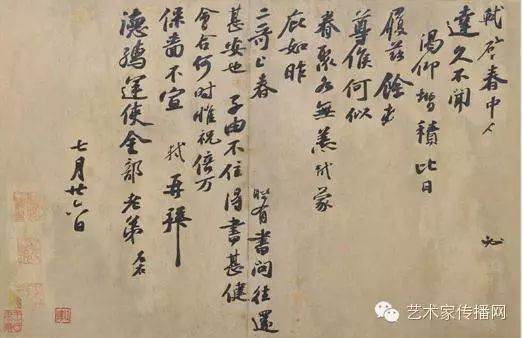 軾啓春中 必
達久不聞
渴仰增積比日
履茲餘熱
尊候何似
眷聚各無恙軾蒙
庇如昨
二哥上春 時有書問往還
甚安也 子由不住得書甚健
會合何時惟祝倍万
保嗇不宣 軾再拜
德孺運使金部老弟
七月廿六日
艺术家传播网